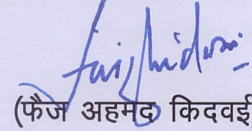 (फैज अहमद किदवई